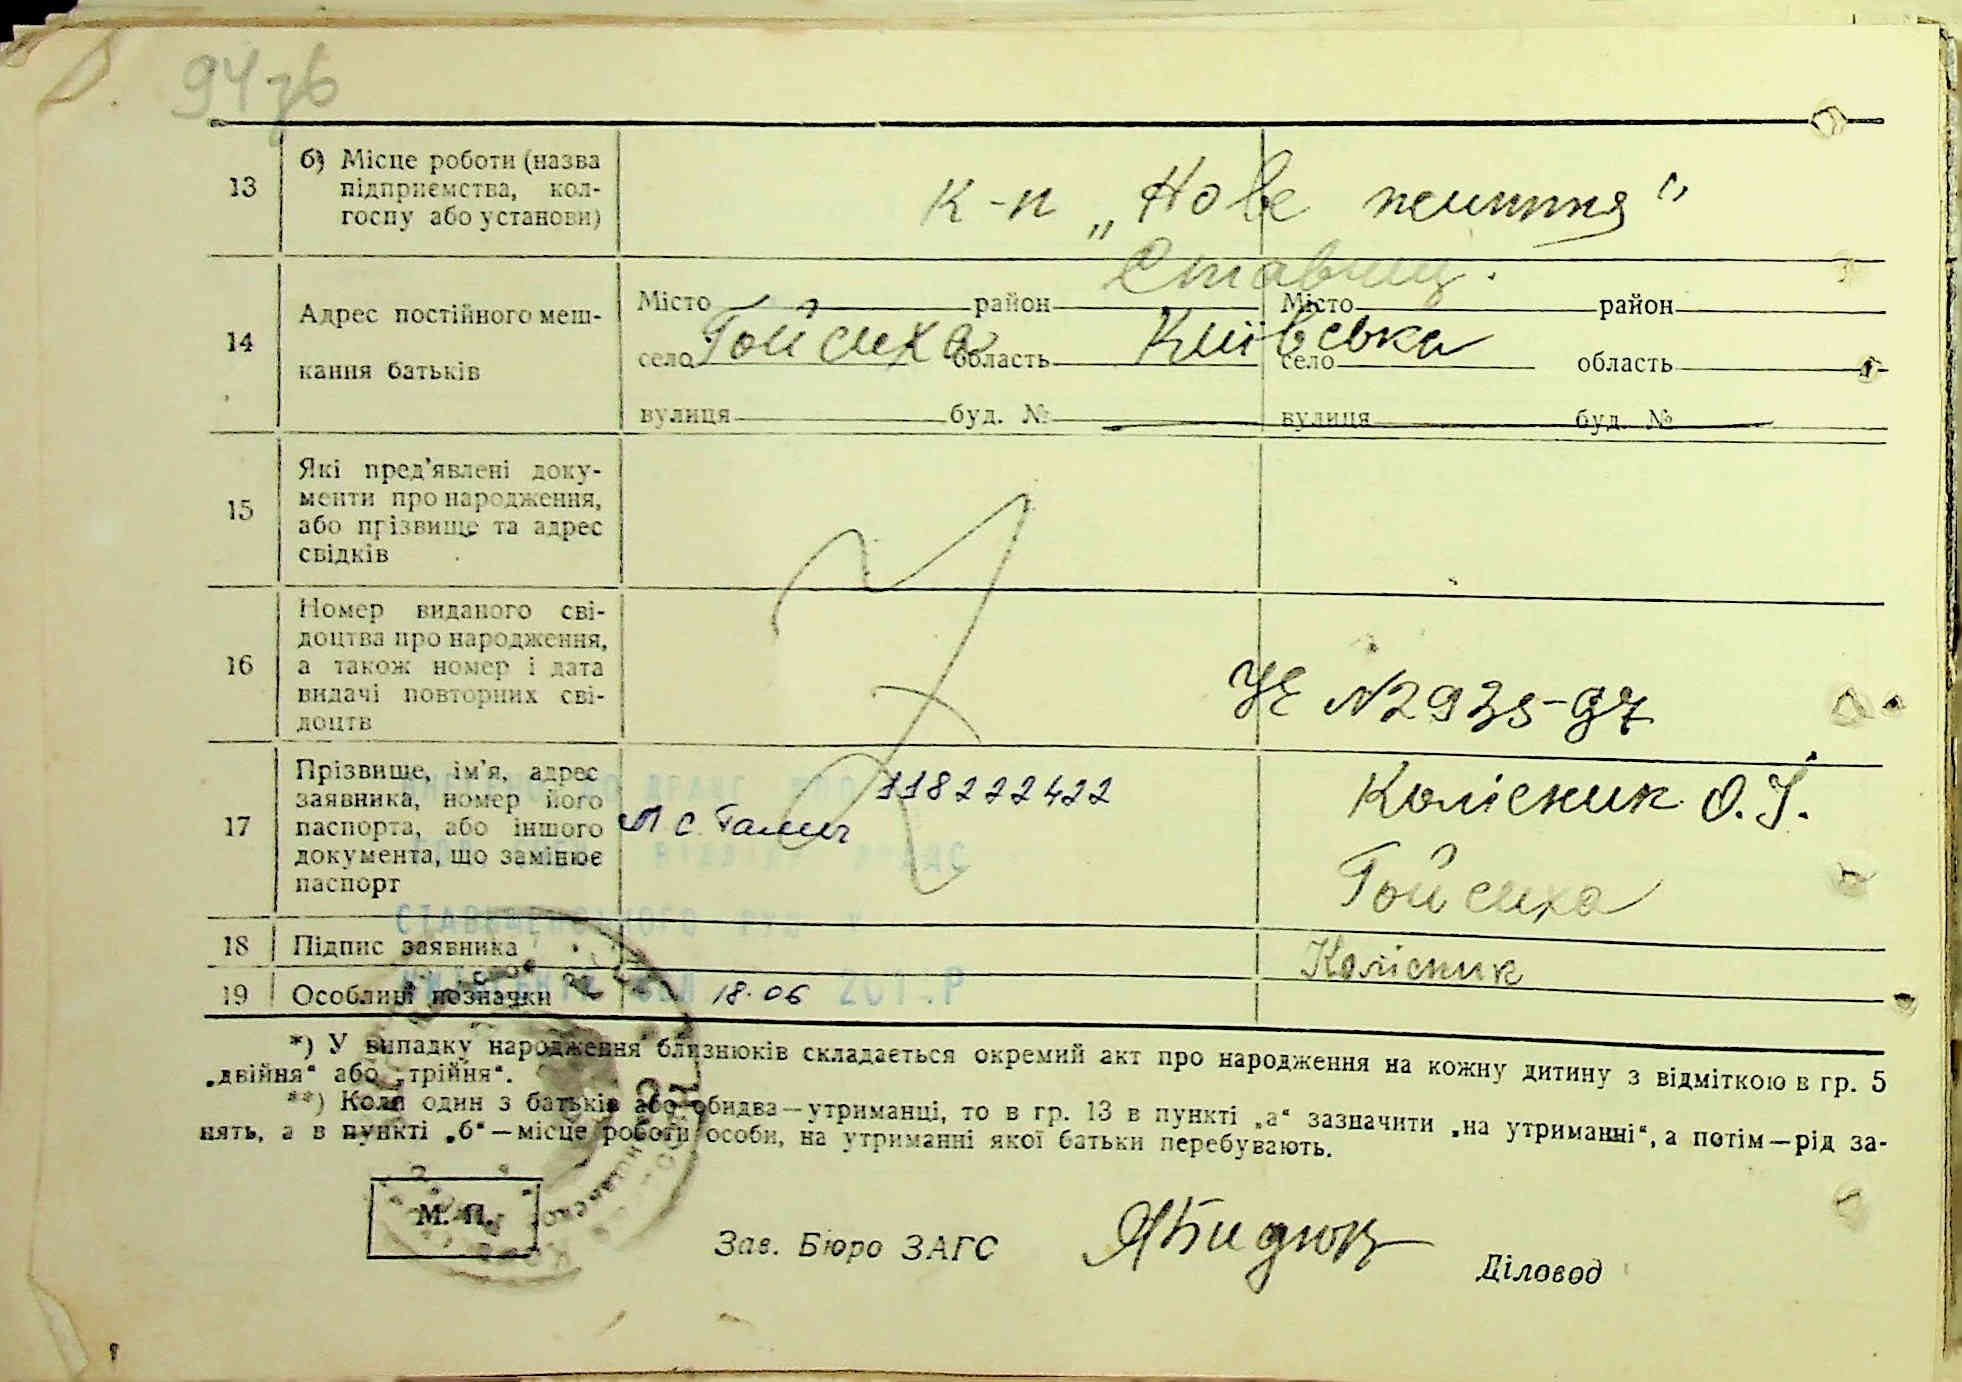 94зв
13
б) Місце роботи (назва
підприємства, кол-
госпу або установи)
к-п „Нове життя"
14
Адрес постійного меш-
кання батьків
Ставищ.
Місто район Місто район
село Гойсиха область Київська село область
вулиця буд. № вулиця буд. №
15
Які пред'явлені доку-
менти про народження,
або прізвище та адрес
свідків
16
Номер виданого сві-
доцтва про народження,
а також номер і дата
видачі повторних сві-
доцтв
17
Прізвище, ім'я, адрес
заявника, номер його
паспорта, або іншого
документа, що замінює
паспорт
118222422
Колісник О. І.
Гойсиха
18
Підпис заявника
Колісник
19
Особливі позначки
18.06
*) У випадку народження близнюків складається окремий акт про народження на кожну дитину з відміткою в гр. 5
„двійня“ або „трійня“.
**) Коли один з батьків або обидва—утриманці, то в гр. 13 в пункті „а“ зазначити „на утриманні“, а потім—рід за-
нять, а в пункті „б“—місце роботи особи, на утриманні якої батьки перебувають.
М. П.
Зав. Бюро ЗАГС
Діловод